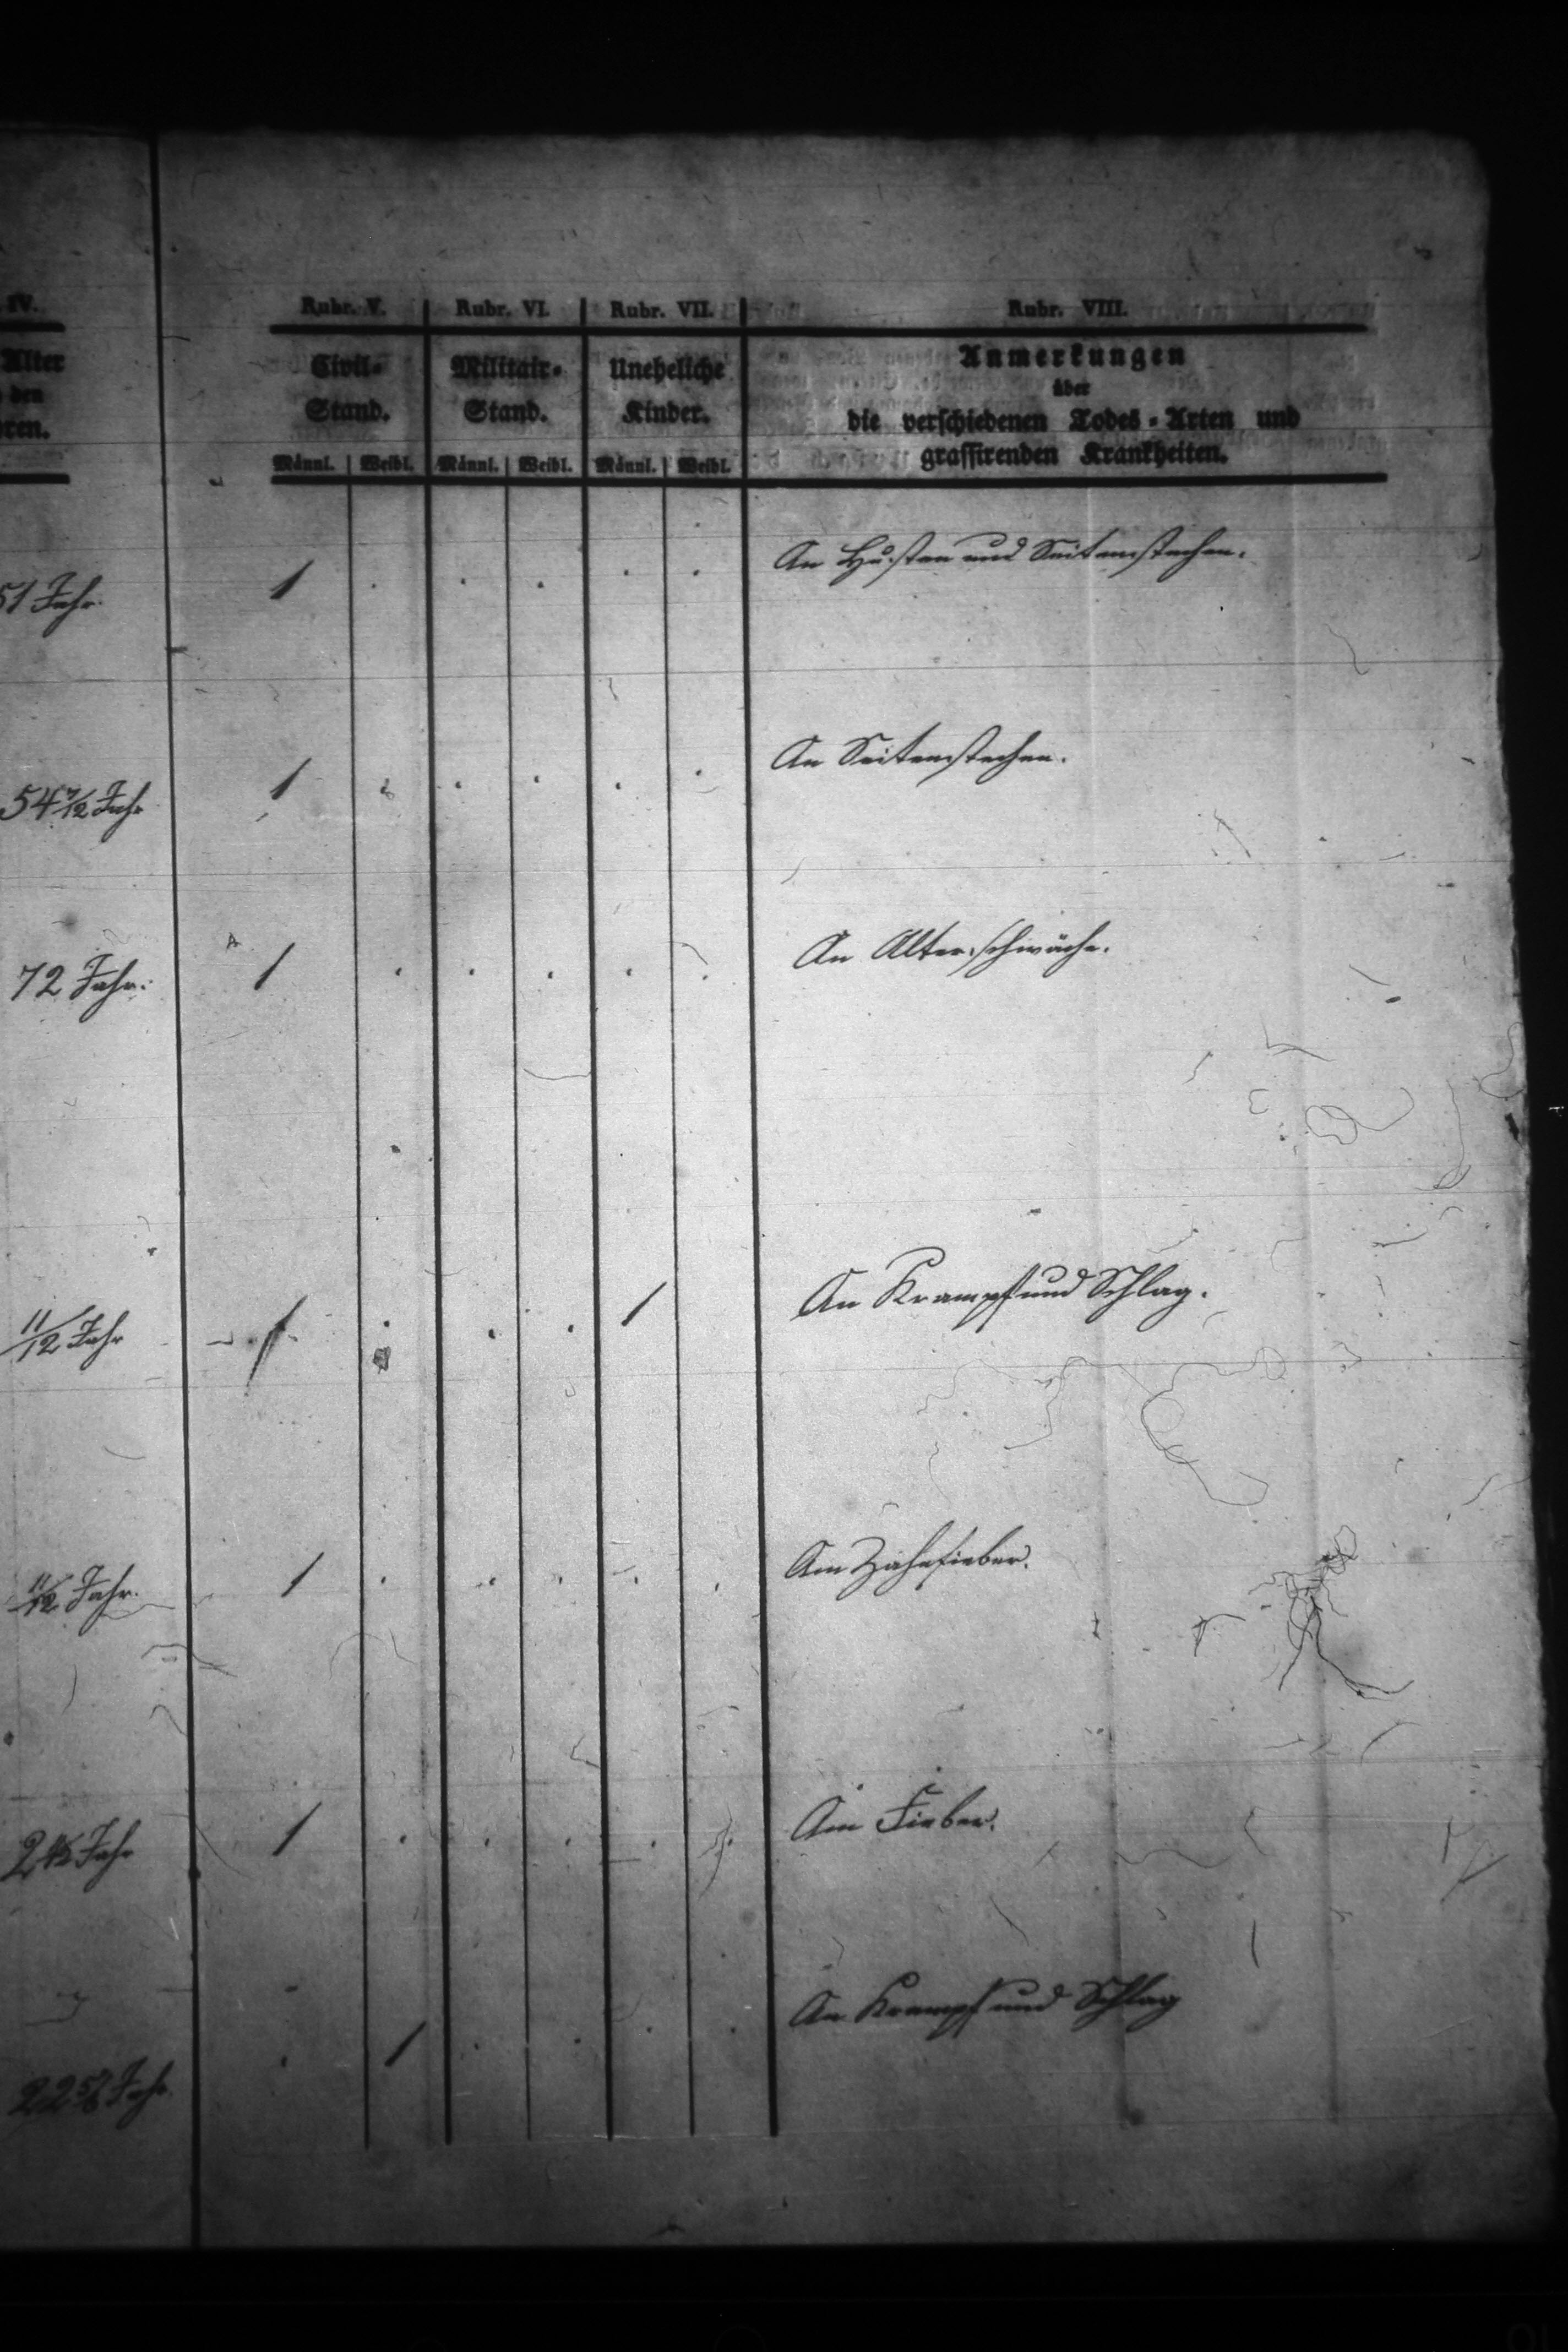 IV. Rubr. V. Rubr. VI. Rubr. VII. Rubr. VIII.
Alter
den
ren.
Civil-
Stand.
Militair-
Stand.
Uneheliche
Kinder.
Anmerkungen
über
die verschiedenen Todes-Arten und
grassirenden Krankheiten.
Männl. Weibl. Männl. Weibl. Männl. Weibl.
An Husten und Seitenstechen.
51 Jahr. 1 . . . . .
An Seitenstechen.
54 7/12 Jahr 1 . . . .
An Alterschwäche.
72 Jahr. 1 . . . . .
An Krampf und Schlag.
11/12 Jahr 1 . . . 1
Am Zahnfieber.
11/12 Jahr. 1 . . . . .
Am Fieber.
Jahr 1 . . . . .
An Krampf und Schlag
Jahr . 1 . . . .